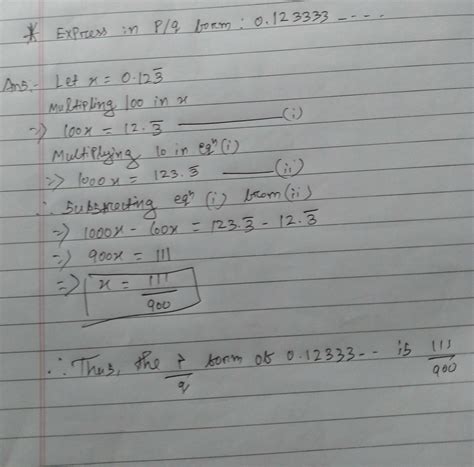 * Express in P/q form : 0.123333 ----
Ans:- Let x = 0.123̅
Multipling 100 in x
=> 100x = 12.3̅ ——— (i)
Multiplying 10 in eqⁿ(i)
=> 1000x = 123.3̅ —— (ii)
∴ Substracting eqⁿ (i) from (ii)
=> 1000x - 100x = 123.3̅ - 12.3̅
=> 900x = 111
=> x = 111/900
∴ Thus, the P/q form of 0.12333-- is 111/900